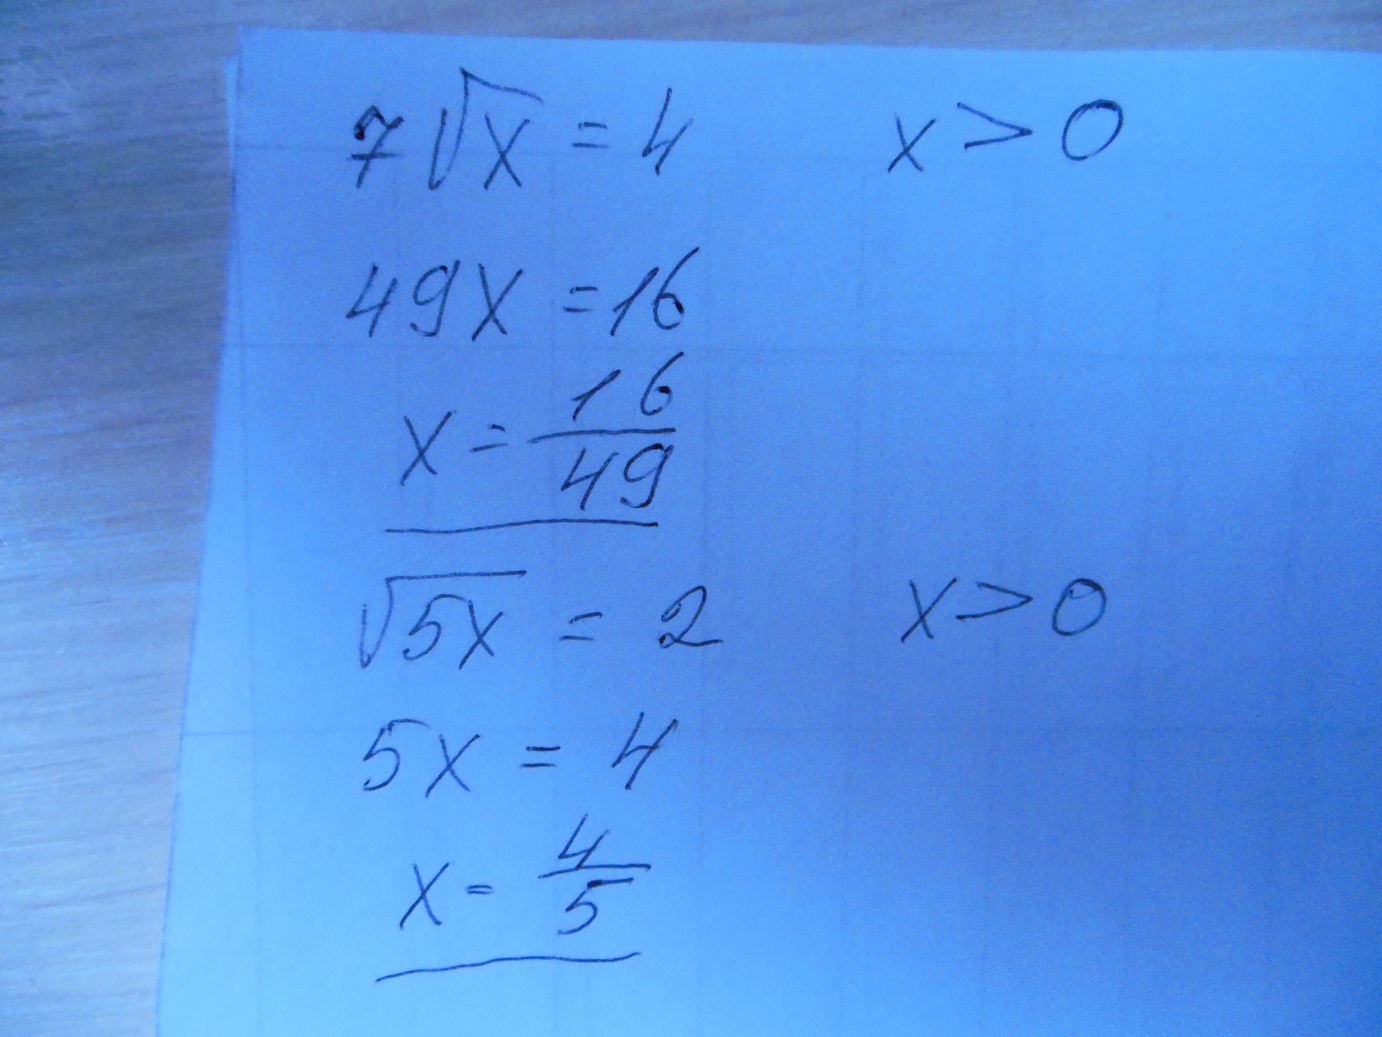 7√x = 4 x > 0
49x = 16
x = 16/49
√5x = 2 x > 0
5x = 4
x = 4/5